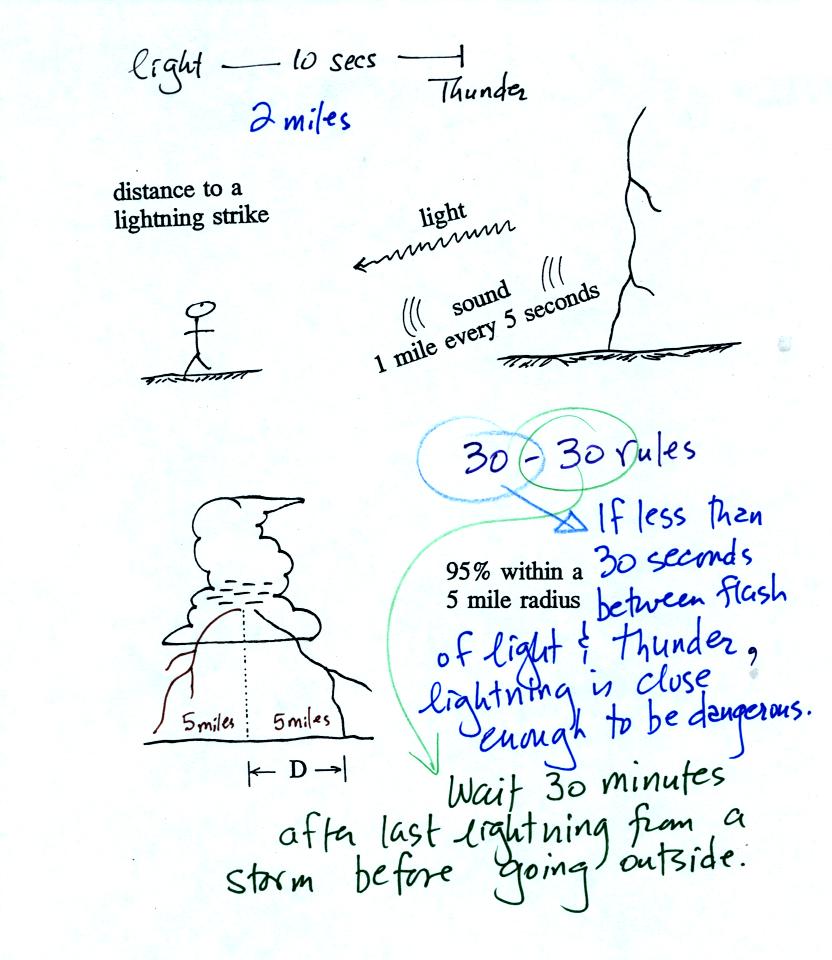 light — 10 secs —
Thunder
2 miles
distance to a
lightning strike
light
sound
1 mile every 5 seconds
30 - 30 rules
If less than
30 seconds
between flash
of light & thunder,
lightning is close
enough to be dangerous.
95% within a
5 mile radius
5 miles 5 miles
D
Wait 30 minutes
after last lightning from a
storm before going outside.